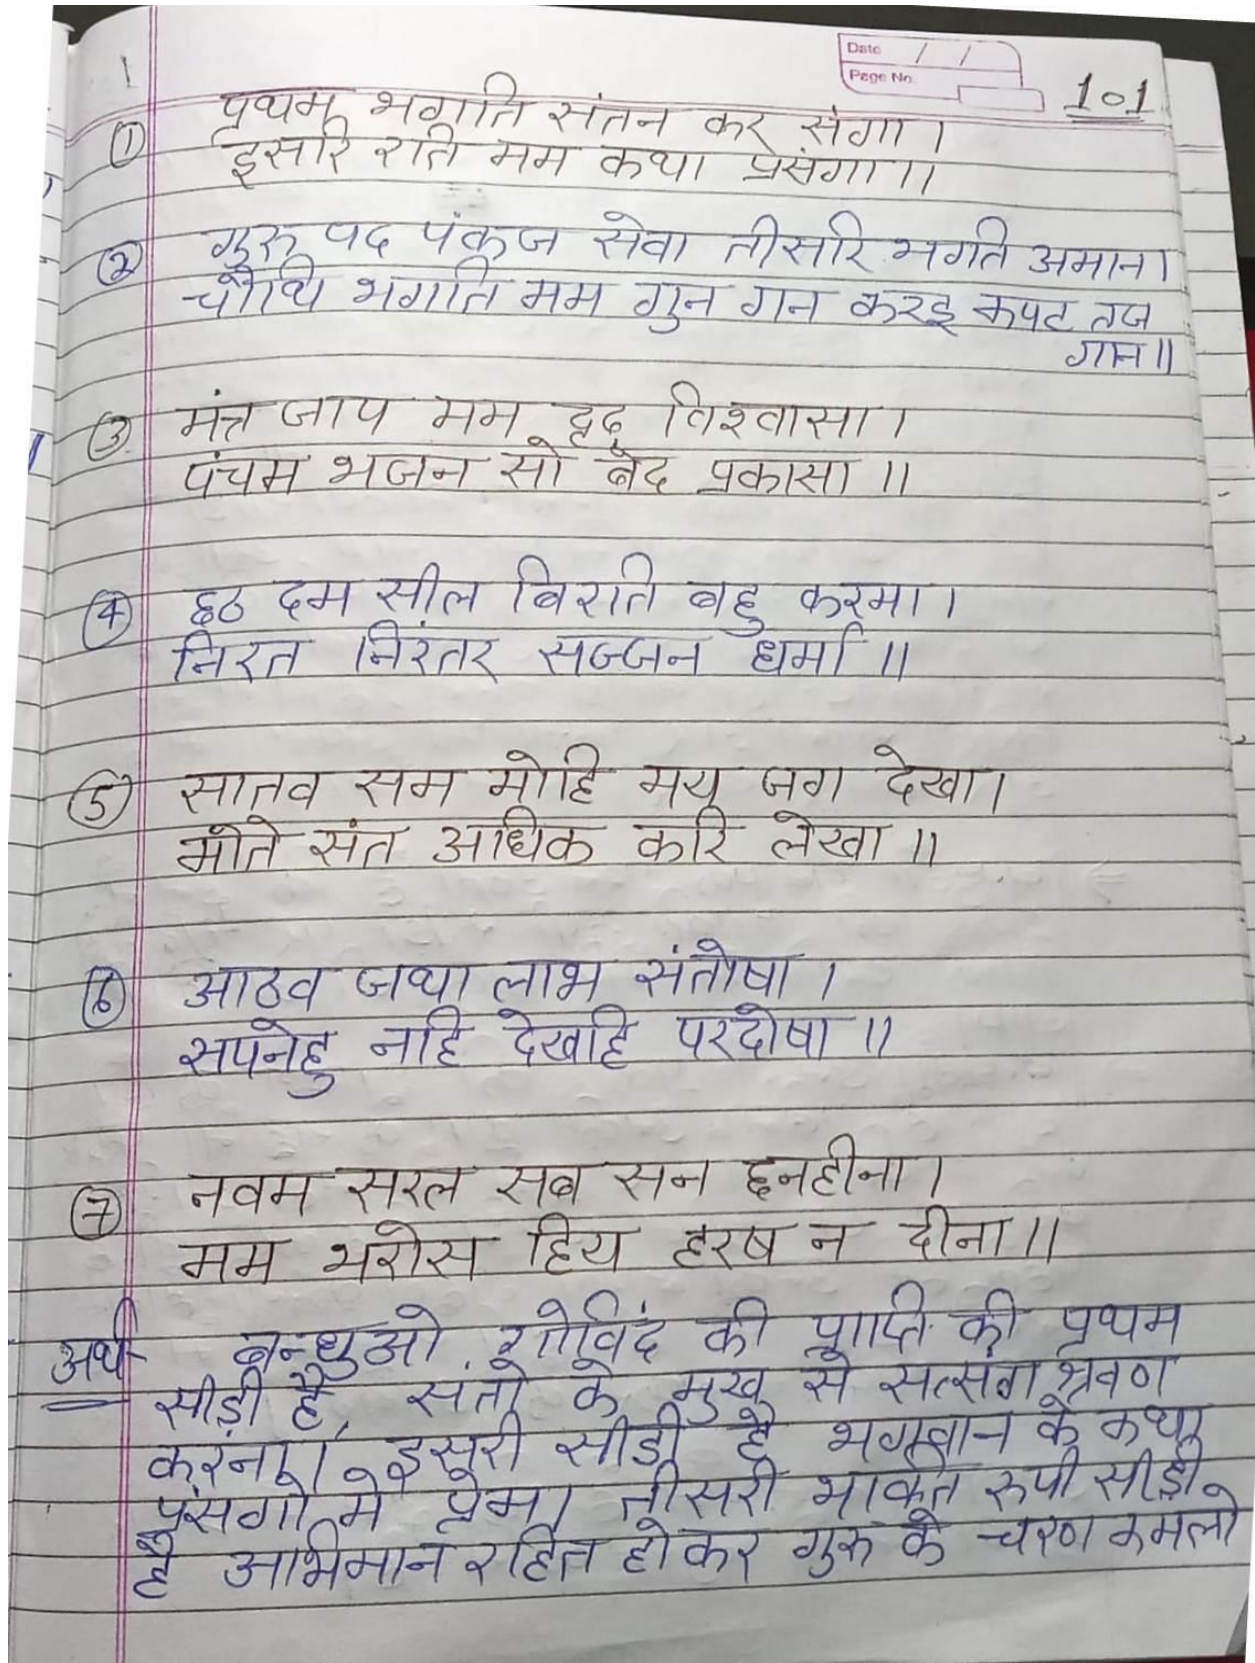 Date / /
Page No.
101
① प्रथम भगति संतन कर संगा।
इसरि रति मम कथा प्रसंगा।।
② गुरु पद पंकज सेवा तीसरि भगति अमान।
चौथि भगति मम गुन गन करइ कपट तज
गान॥
③ मंत्र जाप मम दृढ़ विश्वासा।
पंचम भजन सो बेद प्रकासा ॥
④ छठ दम सील बिरति बहु करमा।
निरत निरंतर सज्जन धर्मा ॥
⑤ सातव सम मोहि मय जग देखा।
मोते संत अधिक करि लेखा ॥
⑥ आठव जथा लाभ संतोषा।
सपनेहु नहि देखहि परदोषा ॥
⑦ नवम सरल सब सन छनहीना।
मम भरोस हिय हरष न दीना॥
अर्थ- बन्धुओ, गोविंद की प्राप्ति की प्रथम
सीड़ी है, संतो के मुख से सत्संग श्रवण
करना। इसरी सीडी है भगवान के कथा
प्रसंगो मे प्रेम। तीसरी भक्ति रुपी सीड़ी
है अभिमान रहित होकर गुरु के चरण कमलो